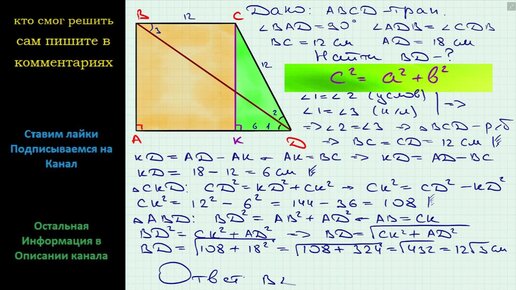 кто смог решить
сам пишите в
комментариях
Ставим лайки
Подписываемся на
Канал
Остальная
Информация в
Описании канала
B 12 C
3
12
2
6 1
A K D
Дано: ABCD - трап.
∠BAD = 90° ∠ADB = ∠CDB
BC = 12 см AD = 18 см
Найти BD - ?
c² = a² + b²
∠1 = ∠2 (услов)
∠1 = ∠3 (н/л) | →
⇒ ∠2 = ∠3 → △BCD - р/б
→ BC = CD = 12 см
KD = AD - AK ← AK = BC → KD = AD - BC
KD = 18 - 12 = 6 см
△CKD: CD² = KD² + CK² → CK² = CD² - KD²
CK² = 12² - 6² = 144 - 36 = 108
△ABD: BD² = AB² + AD² ← AB = CK
BD² = CK² + AD² → BD = √CK² + AD²
BD = √108 + 18² = √108 + 324 = √432 = 12√3 см
Ответ: BD